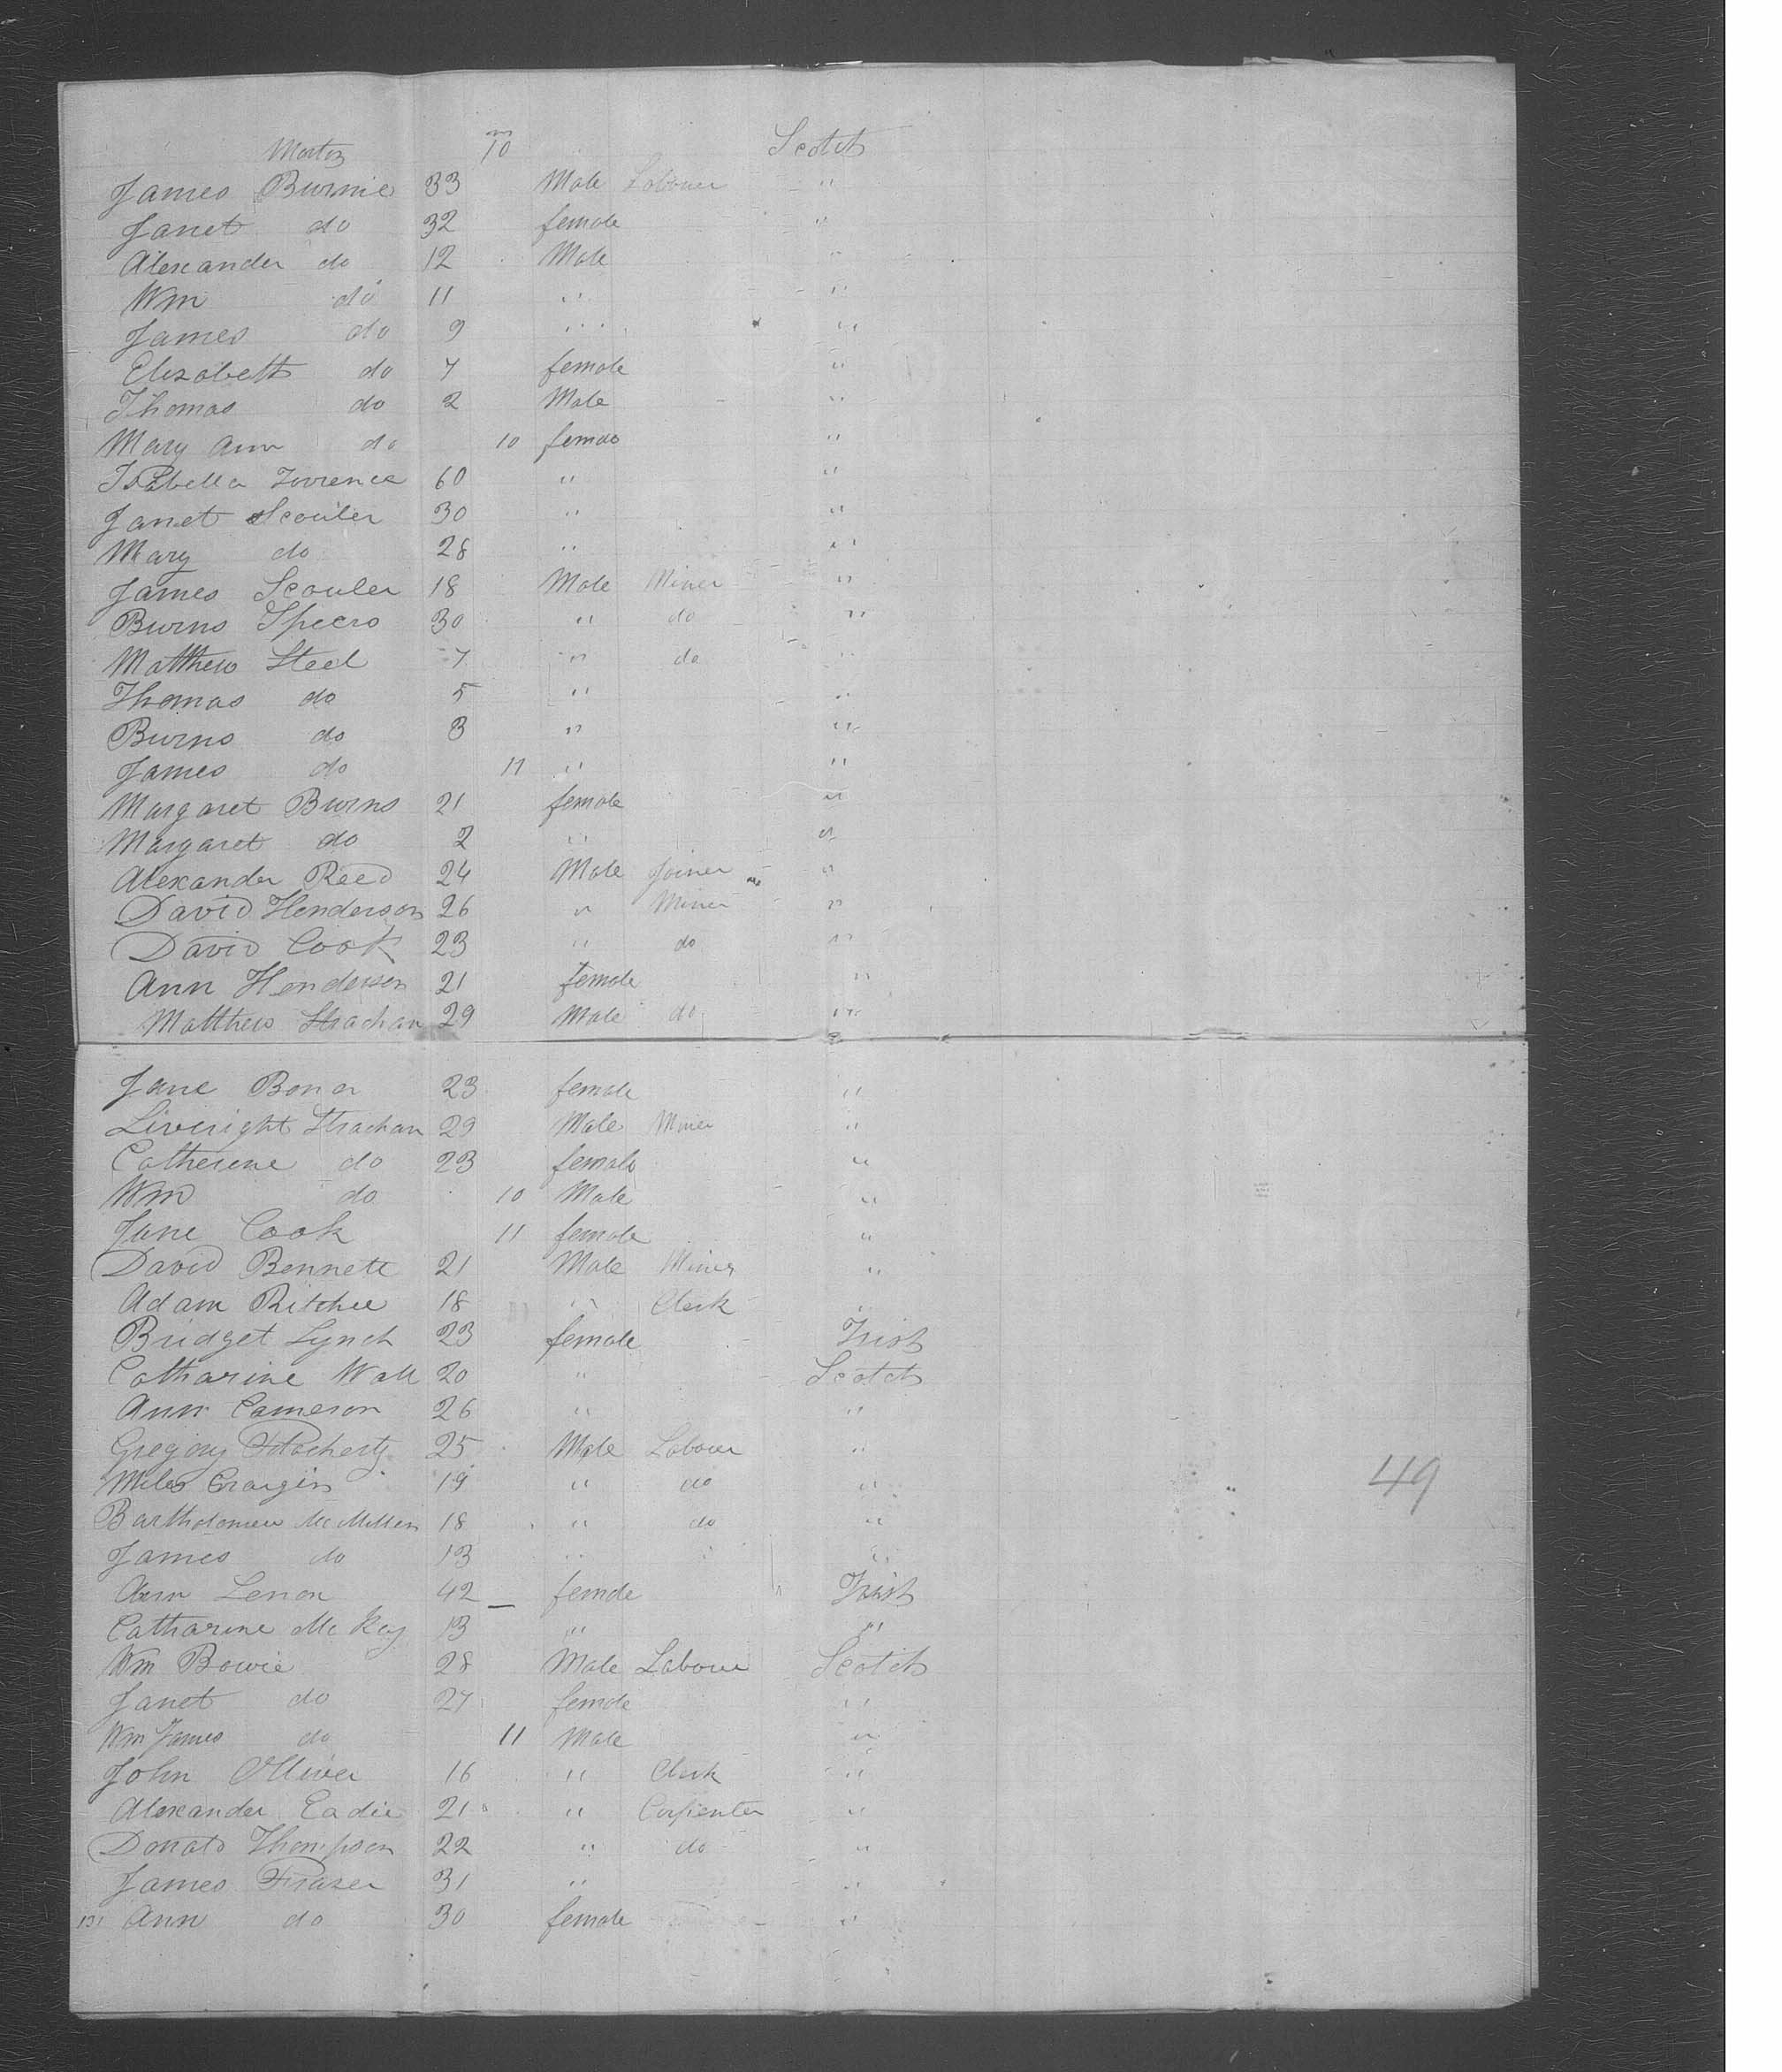 Morton 10 m Scotch
James Burnie 33 Male Labourer "
Janet do 32 female "
Alexander do 12 Male "
Wm do 11 " "
James do 9 " "
Elizabeth do 7 female "
Thomas do 2 Male "
Mary Ann do 10 female "
Isabella Torrence 60 " "
Janet Scouler 30 " "
Mary do 28 " "
James Scouler 18 Male Miner "
Burns Speers 30 " do "
Matthew Steel 7 " do "
Thomas do 5 " "
Burns do 3 " "
James do 11 " "
Margaret Burns 21 female "
Margaret do 2 " "
Alexander Reed 24 Male Joiner "
David Henderson 26 " Miner "
David Cook 23 " do "
Ann Henderson 21 female "
Matthew Strachan 29 Male do "
Jane Bona 23 female "
Liveright Strachan 29 Male Miner "
Catherine do 23 female "
Wm do 10 Male "
Jane Cook 11 female "
David Bennett 21 Male Miner "
Adam Ritchie 18 " Clerk "
Bridget Lynch 23 female Irish
Catharine Wall 20 " Scotch
Ann Cameron 26 " "
Gregory 25 Male Labour "
Miles Cragin 19 " do "
49
Bartholomew McMillen 18 " do "
James do 13 " " "
Ann Lenon 42 female Irish
Catharine McKay 13 " "
Wm Bowie 28 Male Labour Scotch
Janet do 27 female "
Wm James do 11 Male "
John Olliver 16 " Clerk "
Alexander Eadie 21 " Carpenter "
Donald Thompson 22 " do "
James Fraser 31 " "
131 Ann do 30 female "